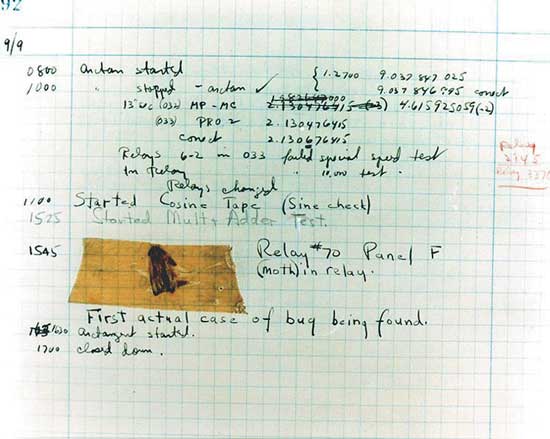 92
9/9
0800 Antan started
1000 " stopped - antan ✓ { 1.2700 9.037 847 025
9.037 846 995 correct
13"uc (033) MP - MC 2.130476415 (-3) 4.615925059(-2)
(033) PRO 2 2.130476415
correct 2.130676415
Relays 6-2 in 033 failed special speed test
In Relay " 10,000 test .
Relay
2145
Relay 3370
Relays changed
1100 Started Cosine Tape (Sine check)
1525 Started Mult+ Adder Test.
1545 Relay #70 Panel F
(moth) in relay.
First actual case of bug being found.
1630 antangent started.
1700 closed down.